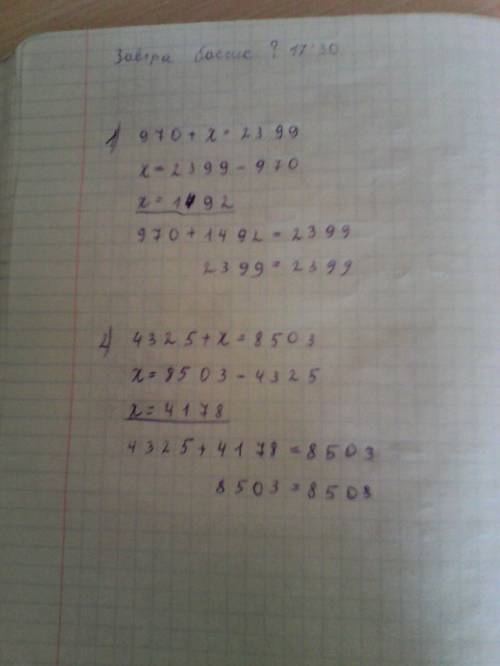 Завтра басис ? 17:30
1) 970 + x = 2399
x = 2399 - 970
x = 1492
970 + 1492 = 2399
2399 = 2399
2) 4325 + x = 8503
x = 8503 - 4325
x = 4178
4325 + 4178 = 8503
8503 = 8503